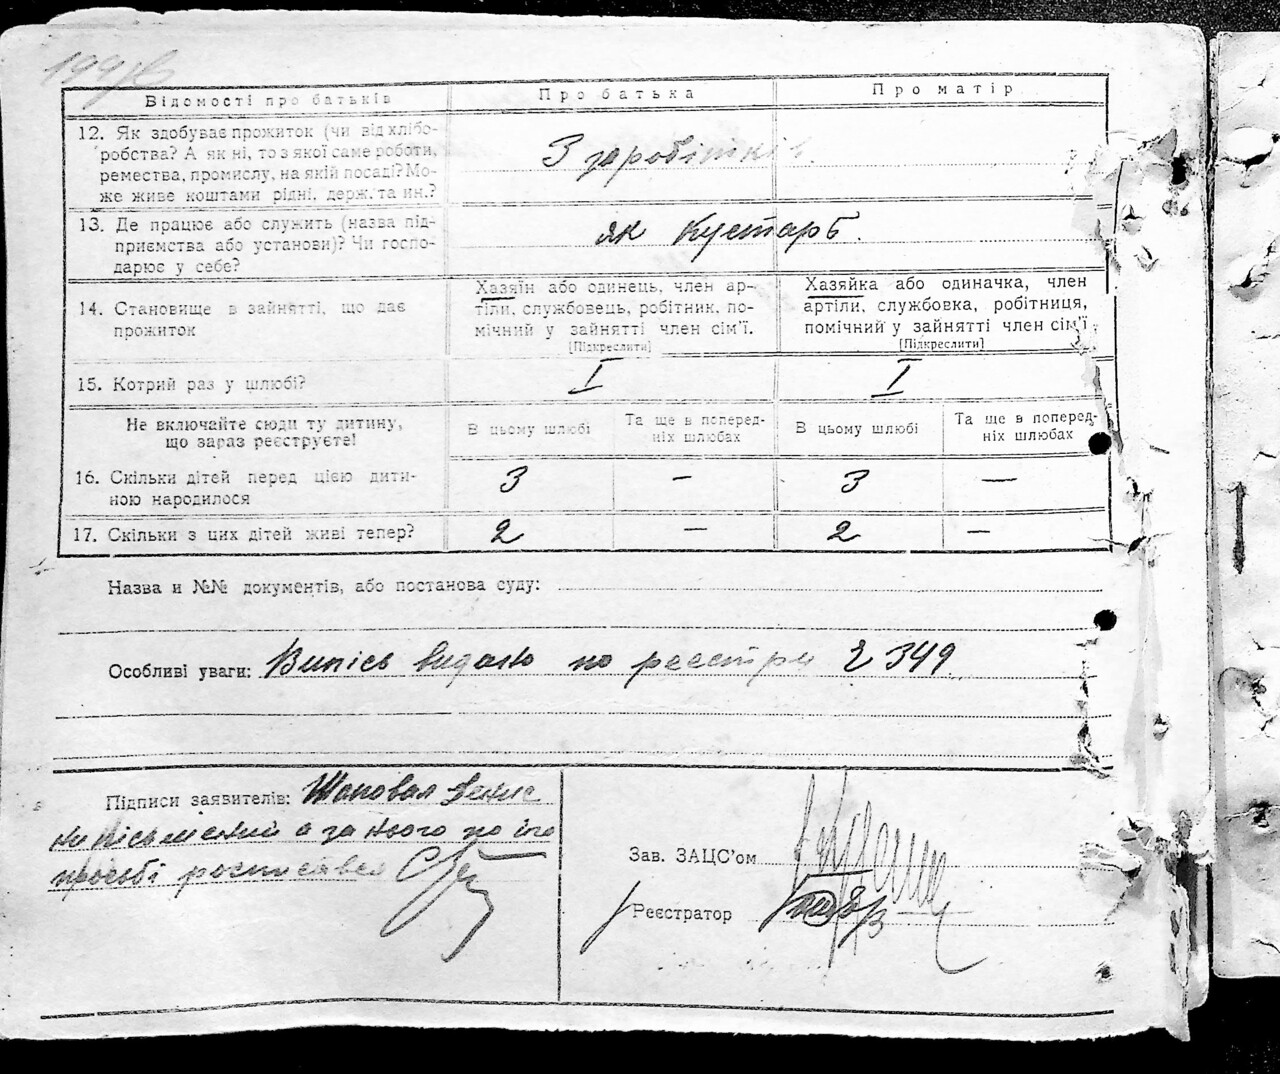 Відомості про батьків
Про батька
Про матір
12. Як здобуває прожиток (чи від хлібо-
робства? А як ні, то з якої саме роботи,
ремества, промислу, на якій посаді? Мо-
же живе коштами рідні, держ. та ин.?
З заробітків
13. Де працює або служить (назва під-
приємства або установи)? Чи госпо-
дарює у себе?
як Кустарь
14. Становище в зайнятті, що дає
прожиток
Хазяїн або одинець, член ар-
тіли, службовець, робітник, по-
мічний у зайнятті член сім'ї.
[Підкреслити]
Хазяйка або одиначка, член
артіли, службовка, робітниця,
помічний у зайнятті член сім'ї
[Підкреслити]
15. Котрий раз у шлюбі?
I
I
Не включайте сюди ту дитину,
що зараз реєструєте!
В цьому шлюбі
Та ще в поперед-
ніх шлюбах
В цьому шлюбі
Та ще в поперед-
ніх шлюбах
16. Скільки дітей перед цією дити-
ною народилося
3
—
3
—
17. Скільки з цих дітей живі тепер?
2
—
2
—
Назва и №№ документів, або постанова суду:
Особливі уваги: Випісь видано по реєстри 349
Підписи заявителів: Шаповал Денис
не пісьмений а за нього по іго
просьбі росписався
Зав. ЗАЦС'ом
Реєстратор